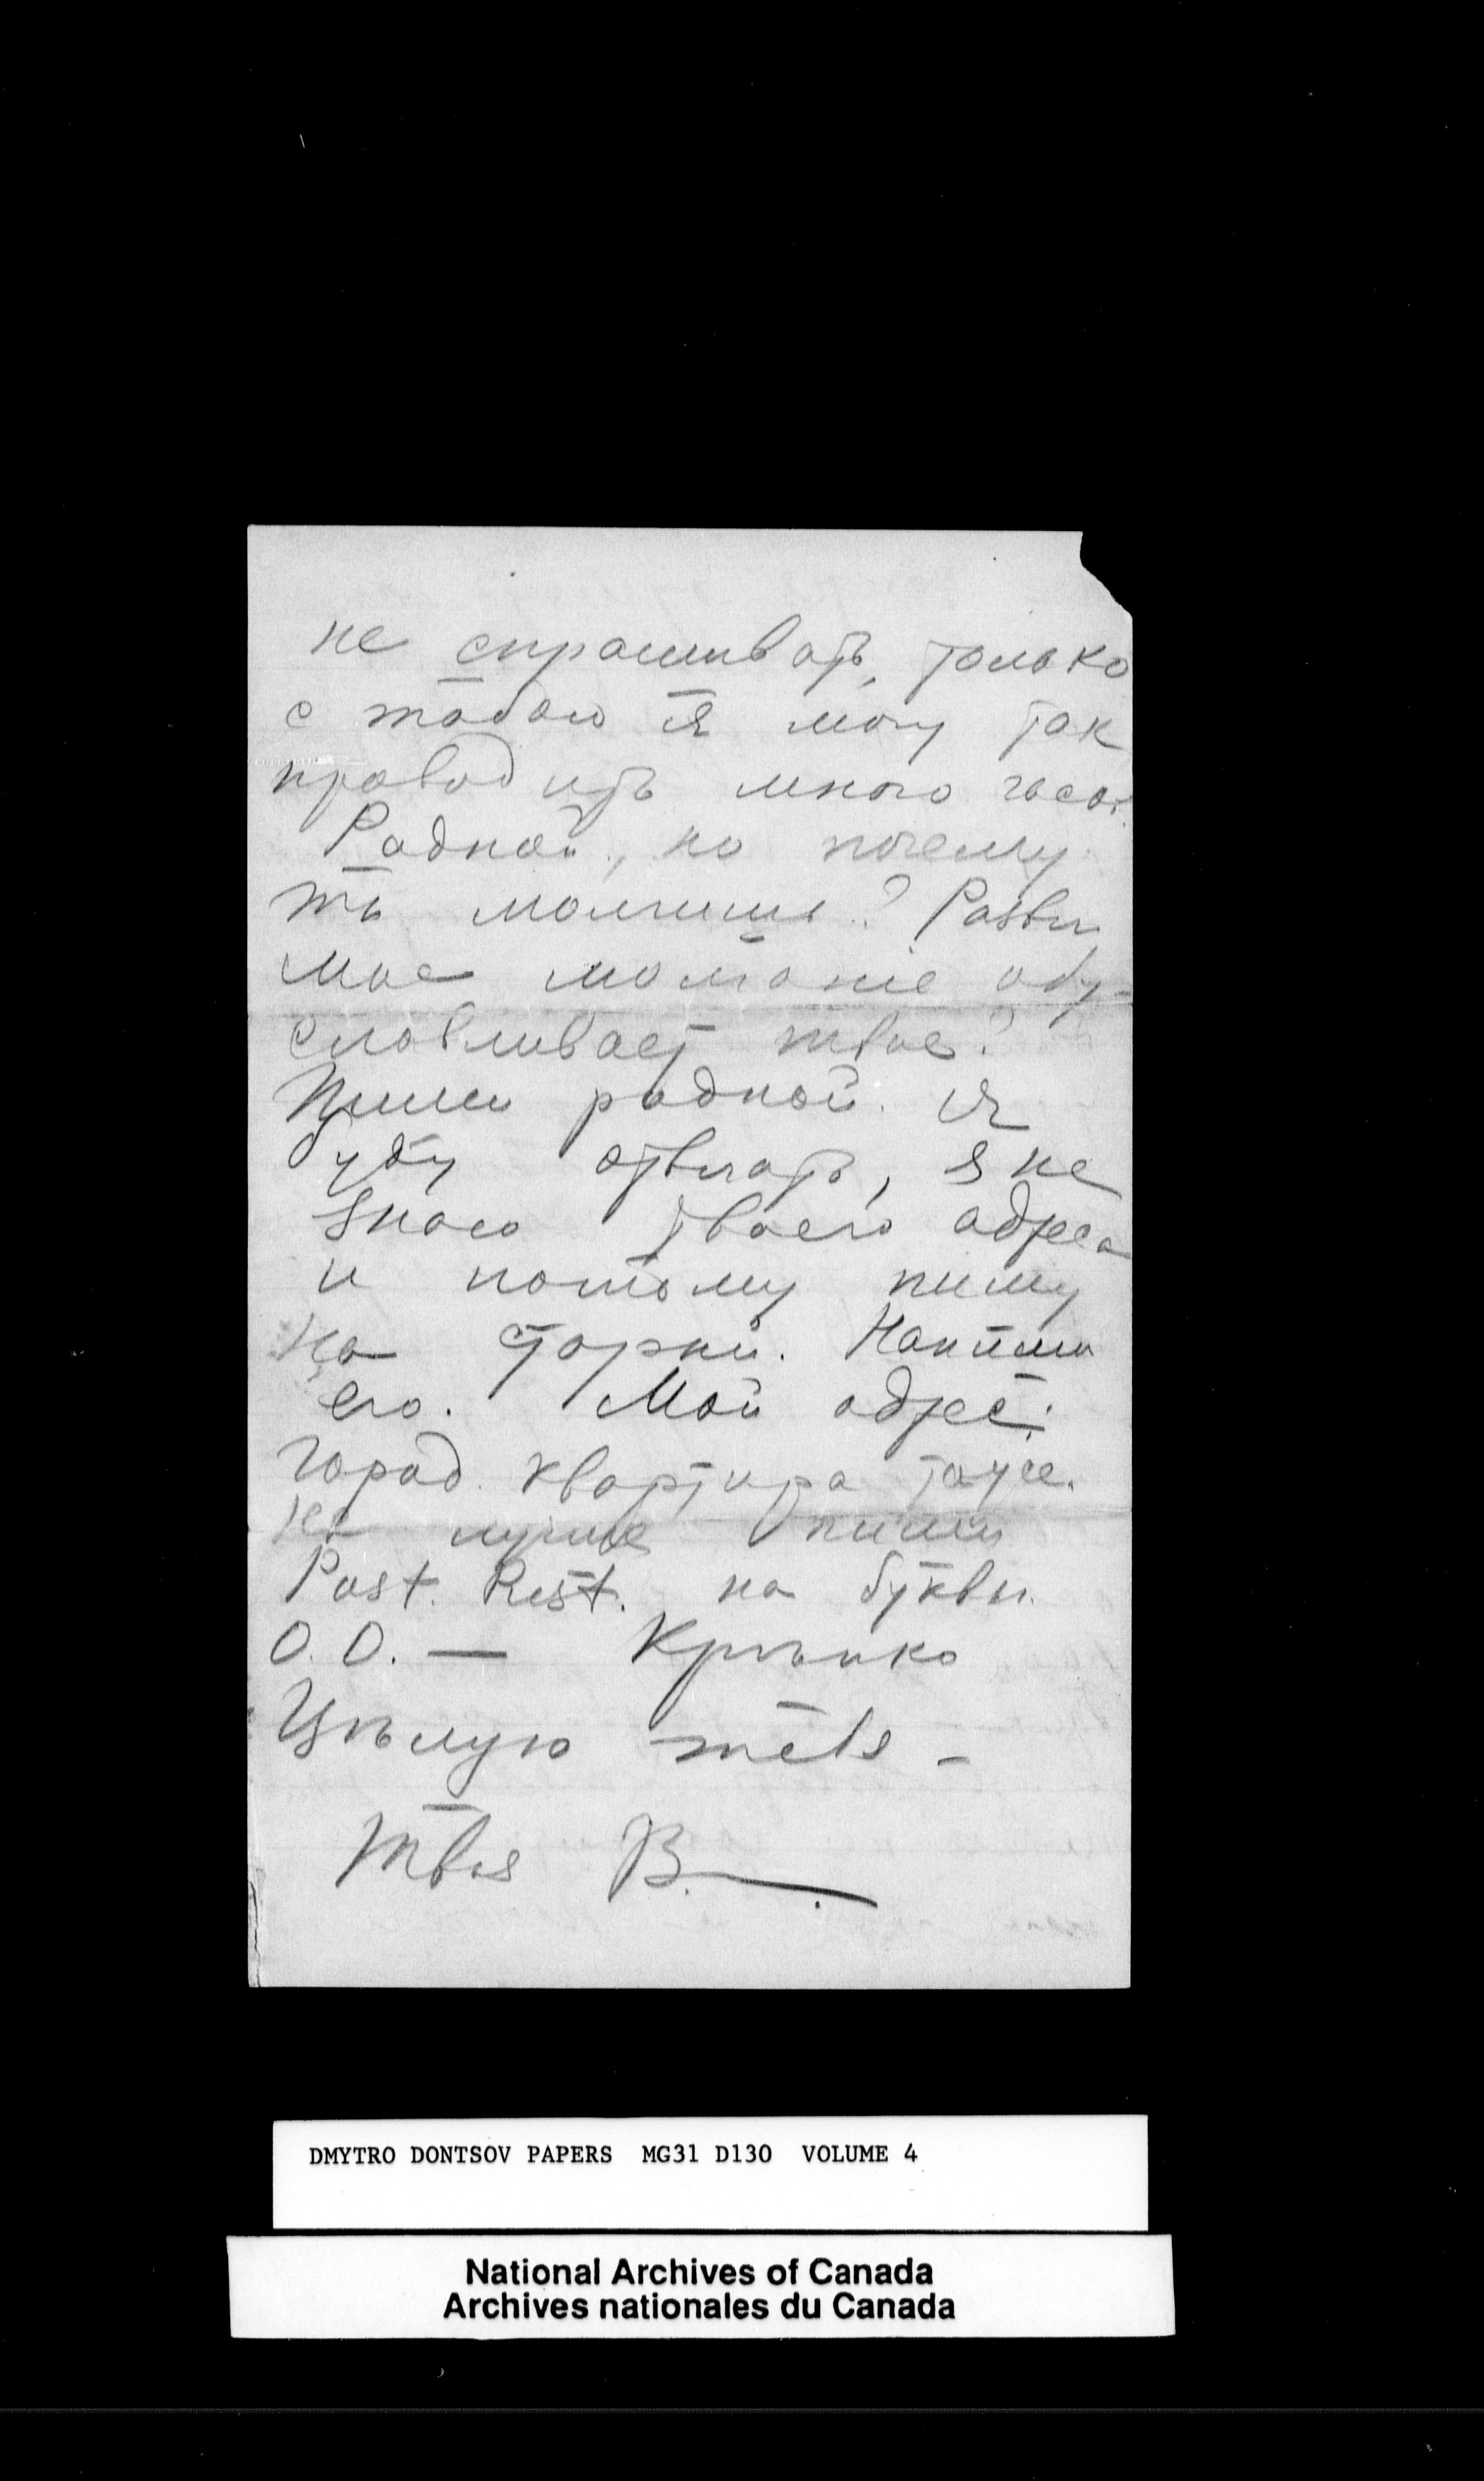 не спрашивать, только
с тобою я могу так
проводить много часов.
Родной, но почему
ты молчишь? Разве
мое молчаніе обу-
словливает твое?
Пиши родной. Я
буду отвѣчать, я не
знаю твоего адреса
и потому пишу
на старый. Напиши
его. Мой адрес:
город. квартира таже.
Но лучше пиши
Post. Rest. на буквы.
О. О. — Крѣпко
Цѣлую тебя —
Твоя В.
DMYTRO DONTSOV PAPERS MG31 D130 VOLUME 4
National Archives of Canada
Archives nationales du Canada